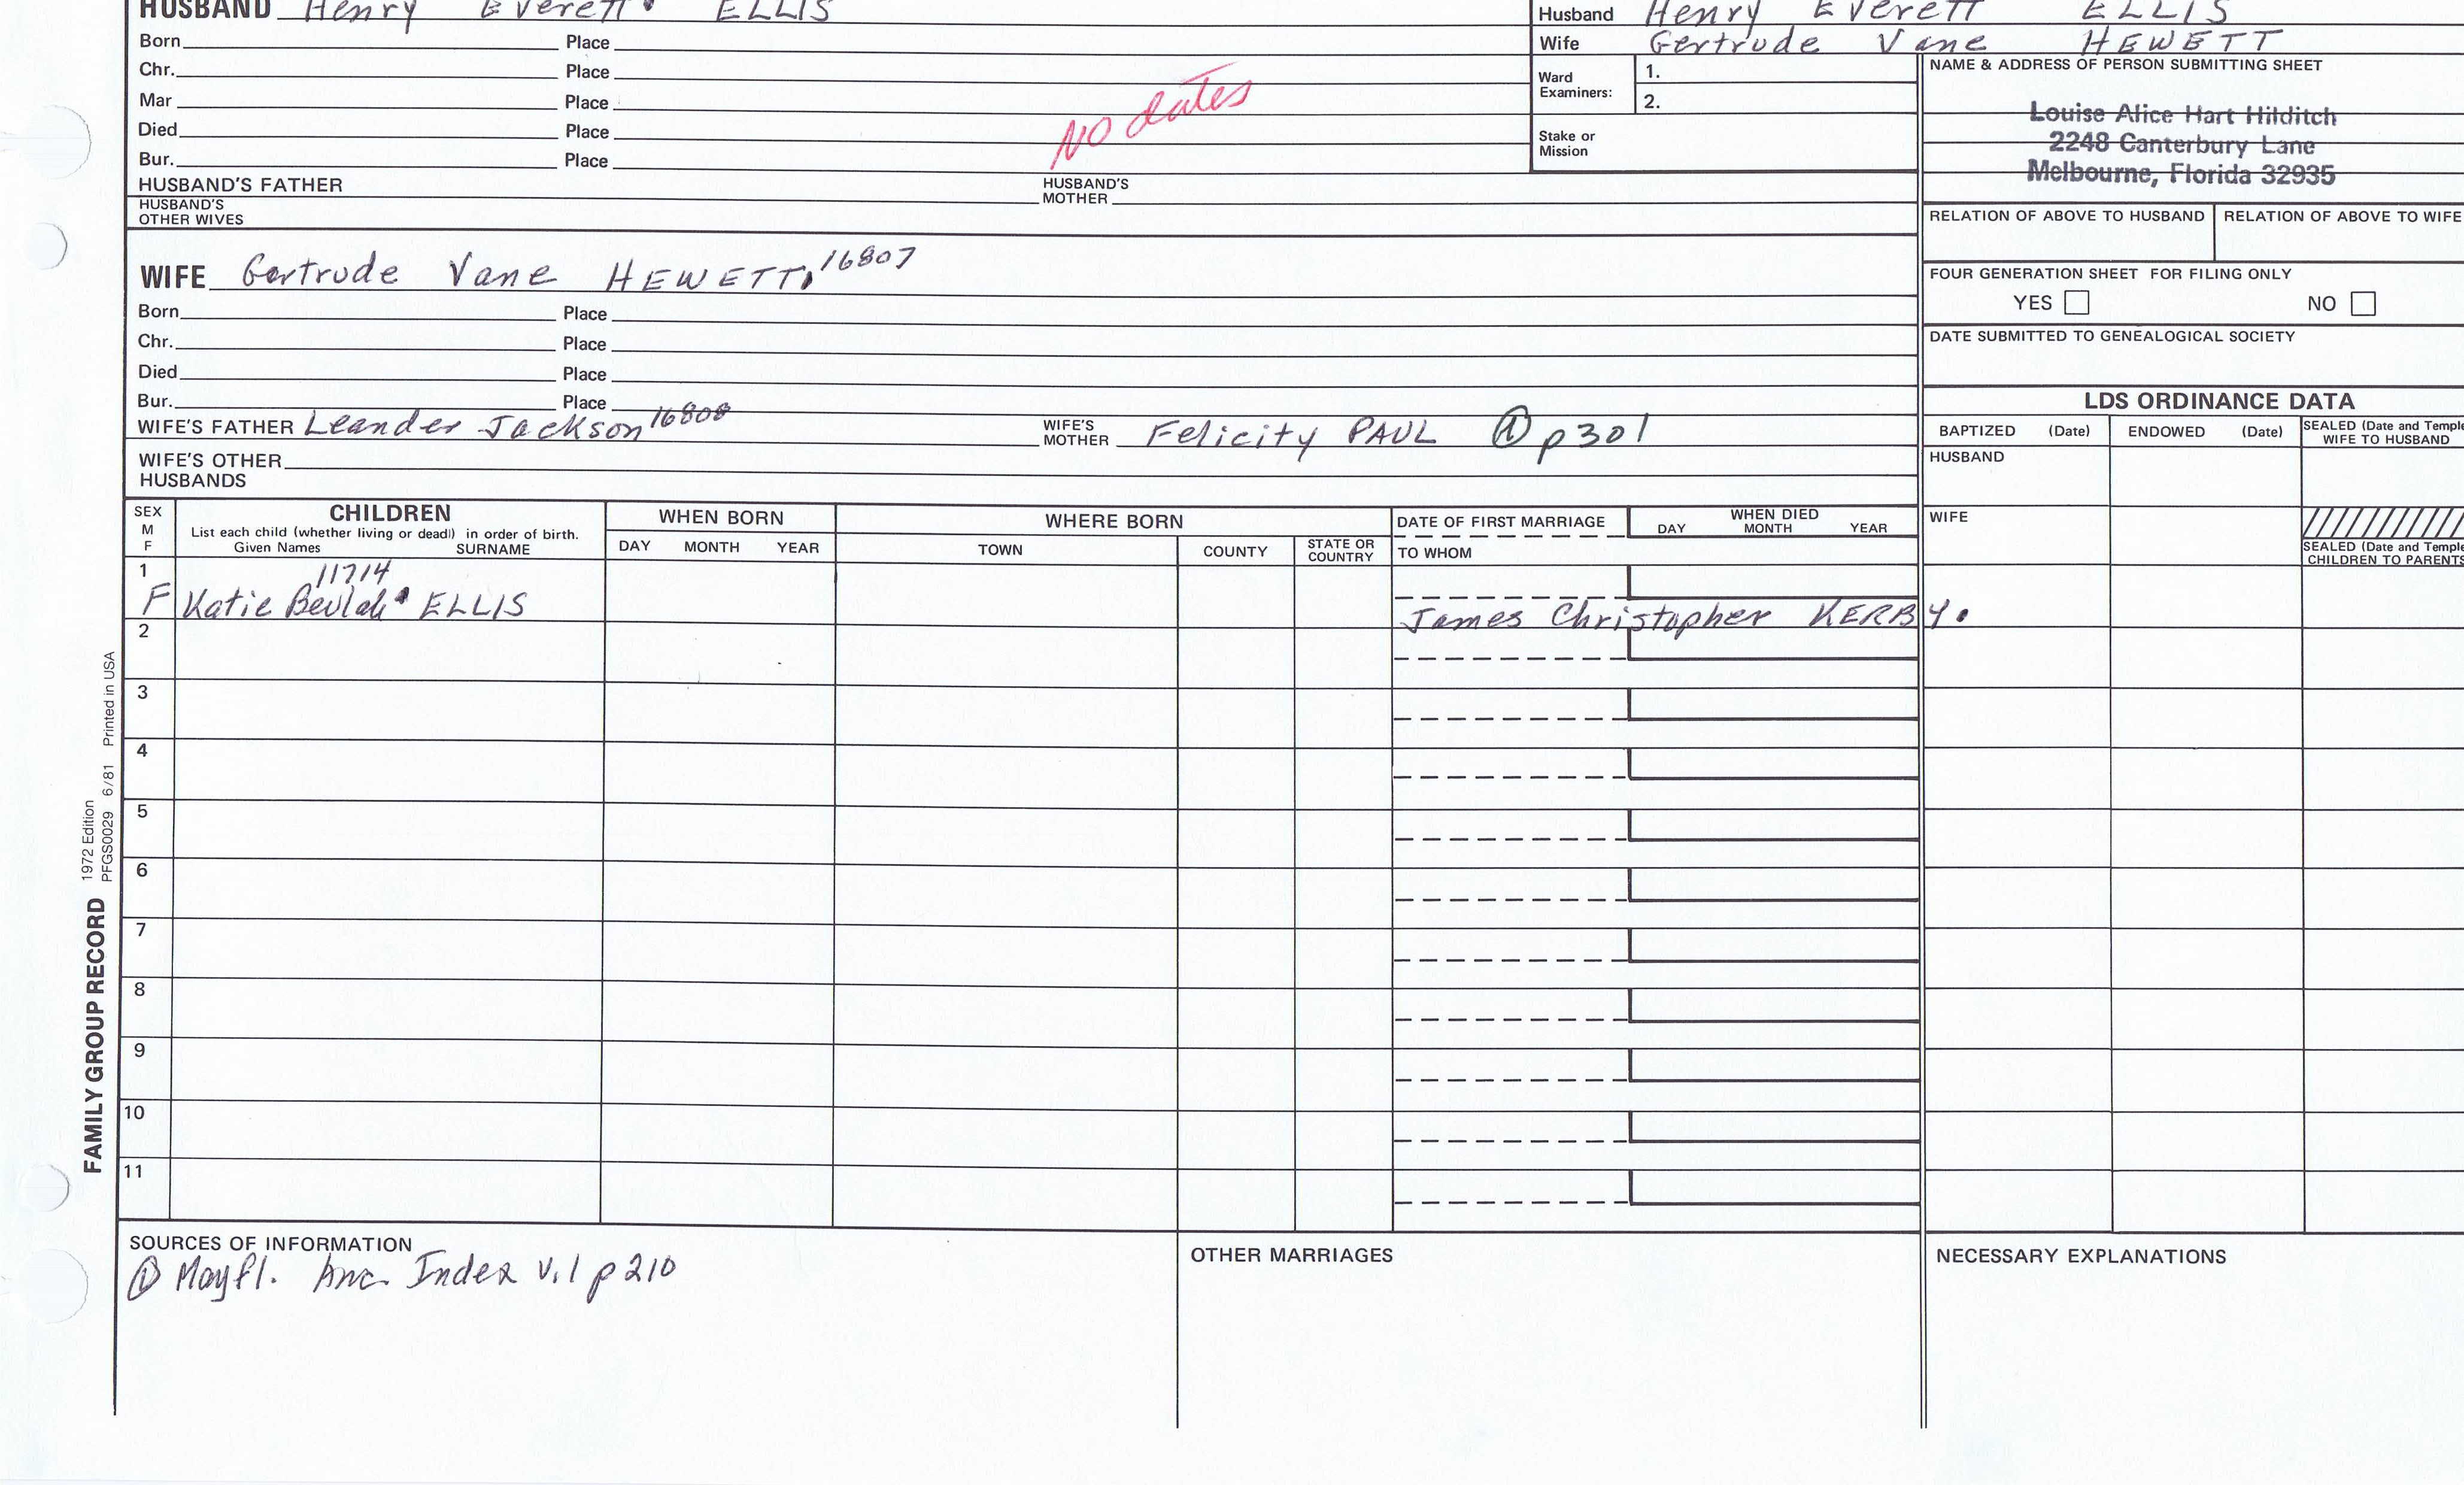 HUSBAND Henry Everett ELLIS
Born Place
Chr. Place
Mar Place
Died Place
Bur. Place
NO dates
HUSBAND'S FATHER HUSBAND'S MOTHER
HUSBAND'S OTHER WIVES
Husband Henry Everett ELLIS
Wife Gertrude Vane HEWETT
Ward Examiners: 1.
2.
Stake or Mission
NAME & ADDRESS OF PERSON SUBMITTING SHEET
Louise Alice Hart Hilditch
2248 Canterbury Lane
Melbourne, Florida 32935
RELATION OF ABOVE TO HUSBAND RELATION OF ABOVE TO WIFE
FOUR GENERATION SHEET FOR FILING ONLY
YES NO
DATE SUBMITTED TO GENEALOGICAL SOCIETY
WIFE Gertrude Vane HEWETT 16807
Born Place
Chr. Place
Died Place
Bur. Place
WIFE'S FATHER Leander Jackson 16808 WIFE'S MOTHER Felicity PAUL ① p301
WIFE'S OTHER HUSBANDS
LDS ORDINANCE DATA
BAPTIZED (Date) ENDOWED (Date) SEALED (Date and Temple WIFE TO HUSBAND
HUSBAND
WIFE
SEALED (Date and Temple CHILDREN TO PARENTS
SEX M F
CHILDREN
List each child (whether living or dead) in order of birth.
Given Names SURNAME
WHEN BORN
DAY MONTH YEAR
WHERE BORN
TOWN COUNTY STATE OR COUNTRY
DATE OF FIRST MARRIAGE
TO WHOM
WHEN DIED
DAY MONTH YEAR
1 11714
F Katie Beulah ELLIS James Christopher KERBY.
2
3
4
5
6
7
8
9
10
11
SOURCES OF INFORMATION
① Mayfl. Anc. Index v.1 p 210
OTHER MARRIAGES
NECESSARY EXPLANATIONS
FAMILY GROUP RECORD 1972 Edition
PFGS0029 6/81 Printed in USA